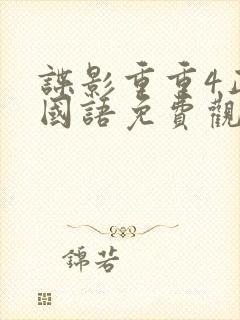 諜影重重4正
國語免費觀
錦若